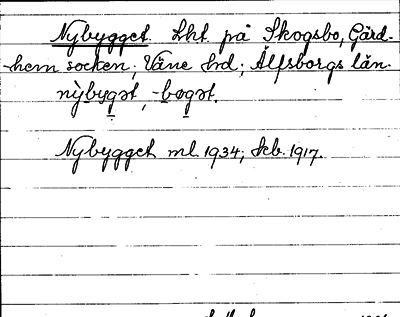 Nybygget. Lht på Skogsbo, Gärd-
hem socken; Väne hd; Älfsborgs län.
nỳbygət, -bogət.
Nybygget ml. 1934; Jeb. 1917.